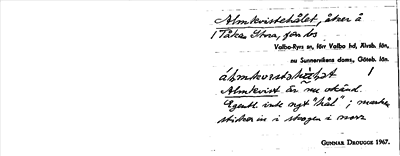 Almkvistehålet, åker å
Tåkas Stora, för los
Valbo-Ryrs sn, förr Valbo hd, Älvsb. län.
nu Sunnervikens doms., Göteb. län.
Almkvist är nu okänd.
Egentl. inte ngt "hål"; marken
sticker in i skogen i norr
GUNNAR DROUGGE 1967.